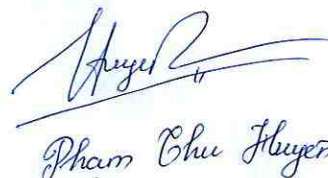 Huyen
Pham Thu Huyen